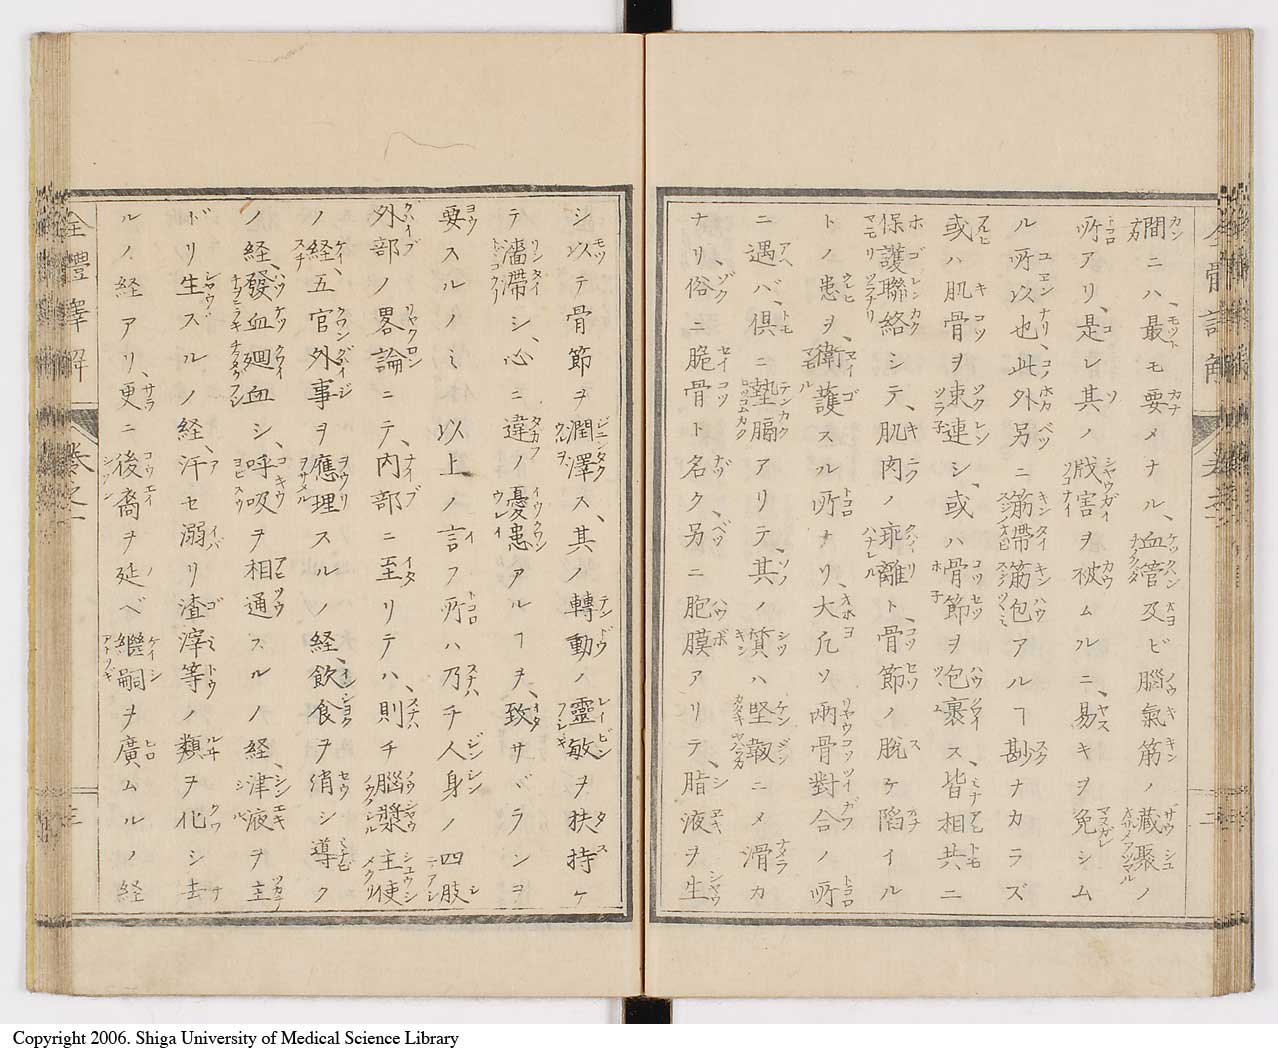 間ニハ、最モ要メナル、血管及ビ腦氣筋ノ蔵聚ノ
所アリ、是レ其ノ戕害ヲ被ムルニ、易キヲ免シム
ル所以也、此外另ニ筋帶筋包アルヿ尠ナカラズ
或ハ肌骨ヲ束連シ、或ハ骨節ヲ包裹ス、皆相共ニ
保護聯絡シテ、肌肉ノ乖離ト、骨節ノ脱ケ陷イル
トノ患ヲ、衛護スル所ナリ、大凡ソ兩骨對合ノ所
ニ遇バ、倶ニ墊膈アリテ、其ノ質ハ堅韌ニメ滑カ
ナリ、俗ニ脆骨ト名ク、另ニ胞膜アリテ、脂液ヲ生
シ以テ骨節ヲ潤澤ス、其ノ轉動ノ靈敏ヲ扶持ケ
テ瀋滯シ、心ニ違ノ憂患アルヿヲ、致サバランヿ
要スルノミ以上ノ言フ所ハ乃チ人身ノ四肢
外部ノ畧論ニテ、内部ニ至リテハ、則チ腦漿主使
ノ経、五官外事ヲ應理スルノ経、飲食ヲ消シ導ク
ノ経、發血廻血シ、呼吸ヲ相通スルノ経、津液ヲ主
ドリ生スルノ経、汗セ溺リ渣滓等ノ類ヲ化シ去
ルノ経アリ、更ニ後裔ヲ延ベ繼嗣ヲ廣ムルノ経
全體譯解
卷之一
三
Copyright 2006. Shiga University of Medical Science Library